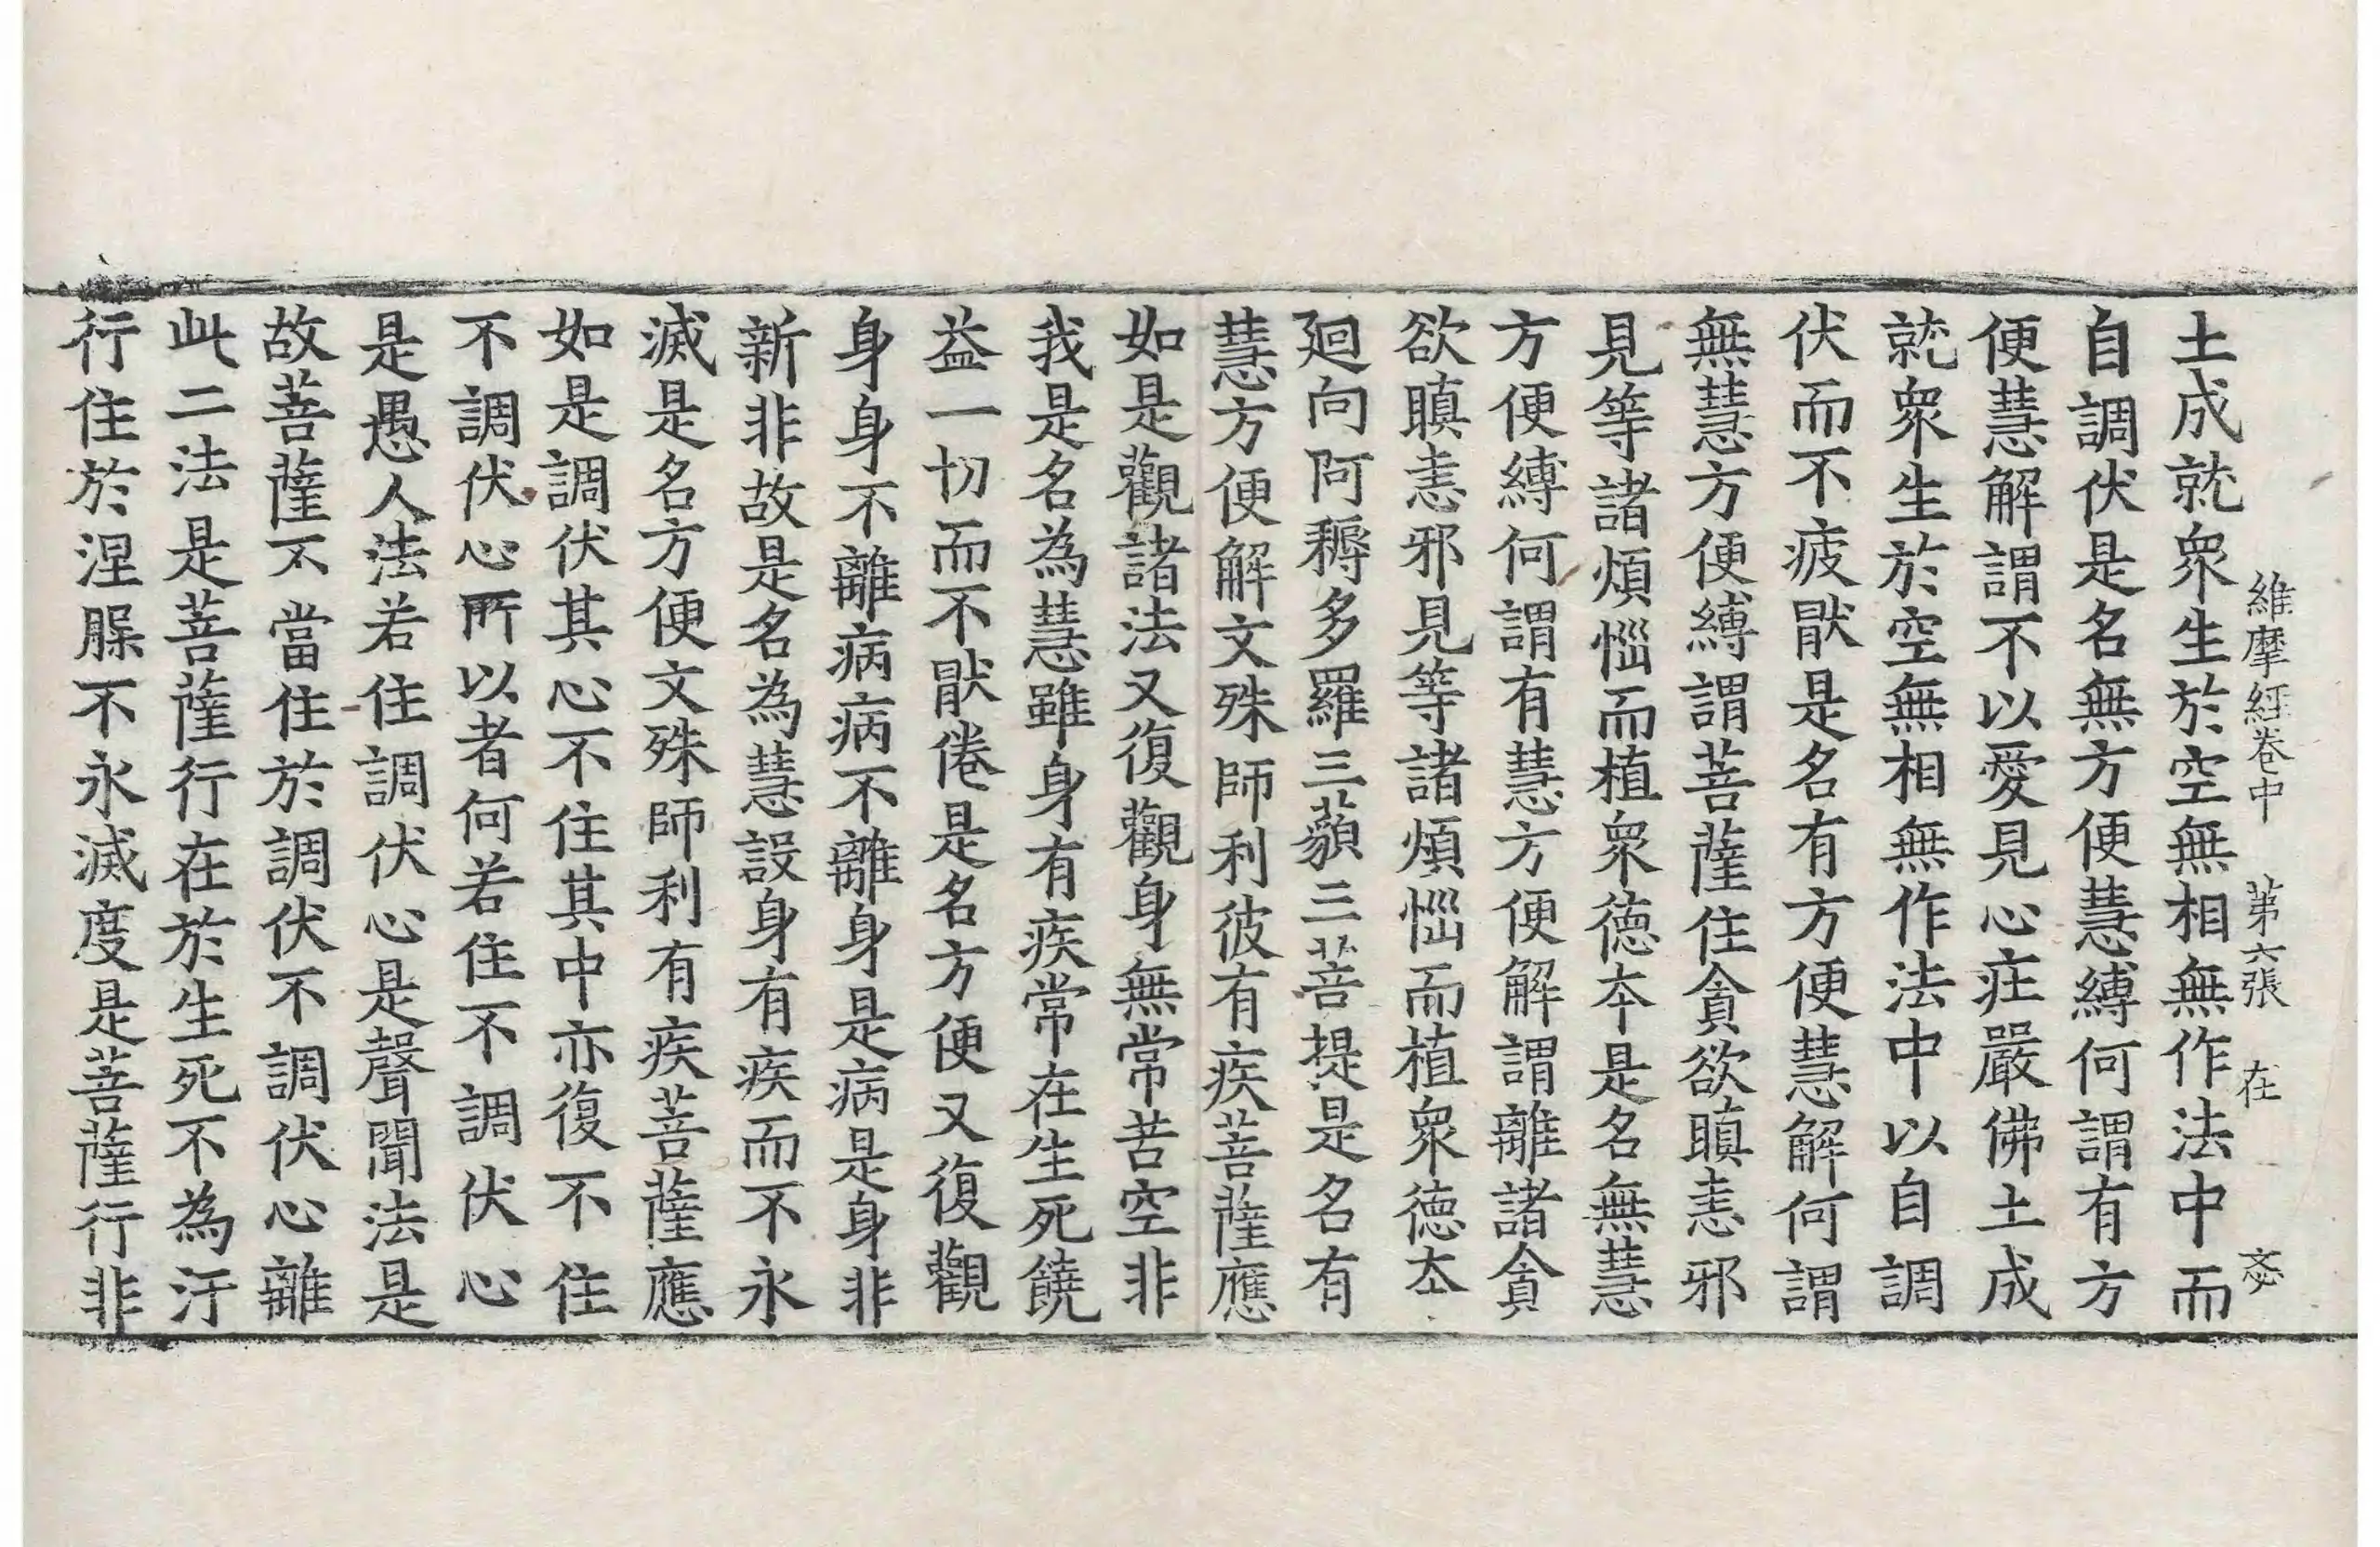 維摩經卷中　第六張　在　文
土成就衆生於空無相無作法中而
自調伏是名無方便慧縛何謂有方
便慧解謂不以愛見心庄嚴佛土成
就衆生於空無相無作法中以自調
伏而不疲猒是名有方便慧解何謂
無慧方便縛謂菩薩住貪欲瞋恚邪
見等諸煩惱而植衆德本是名無慧
方便縛何謂有慧方便解謂離諸貪
欲瞋恚邪見等諸煩惱而植衆德本
廻向阿耨多羅三藐三菩提是名有
慧方便解文殊師利彼有疾菩薩應
如是觀諸法又復觀身無常苦空非
我是名為慧雖身有疾常在生死饒
益一切而不猒倦是名方便又復觀
身身不離病病不離身是病是身非
新非故是名為慧設身有疾而不永
滅是名方便文殊師利有疾菩薩應
如是調伏其心不住其中亦復不住
不調伏心所以者何若住不調伏心
是愚人法若住調伏心是聲聞法是
故菩薩不當住於調伏不調伏心離
此二法是菩薩行在於生死不為汙
行住於涅槃不永滅度是菩薩行非